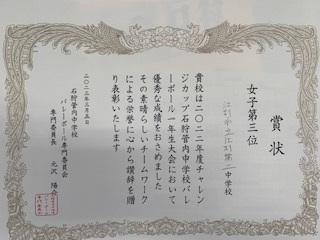 賞状
女子第三位
江別市立江別第二中学校
貴校は二〇二二年度チャレン
ジカップ石狩管内中学校バレ
ーボール一年生大会において
優秀な成績をおさめました
その素晴らしいチームワーク
による栄誉に心から讃辞を贈
り表彰いたします
二〇二三年三月五日
石狩管内中学校
バレーボール専門委員会
専門委員長 元沢 陽介